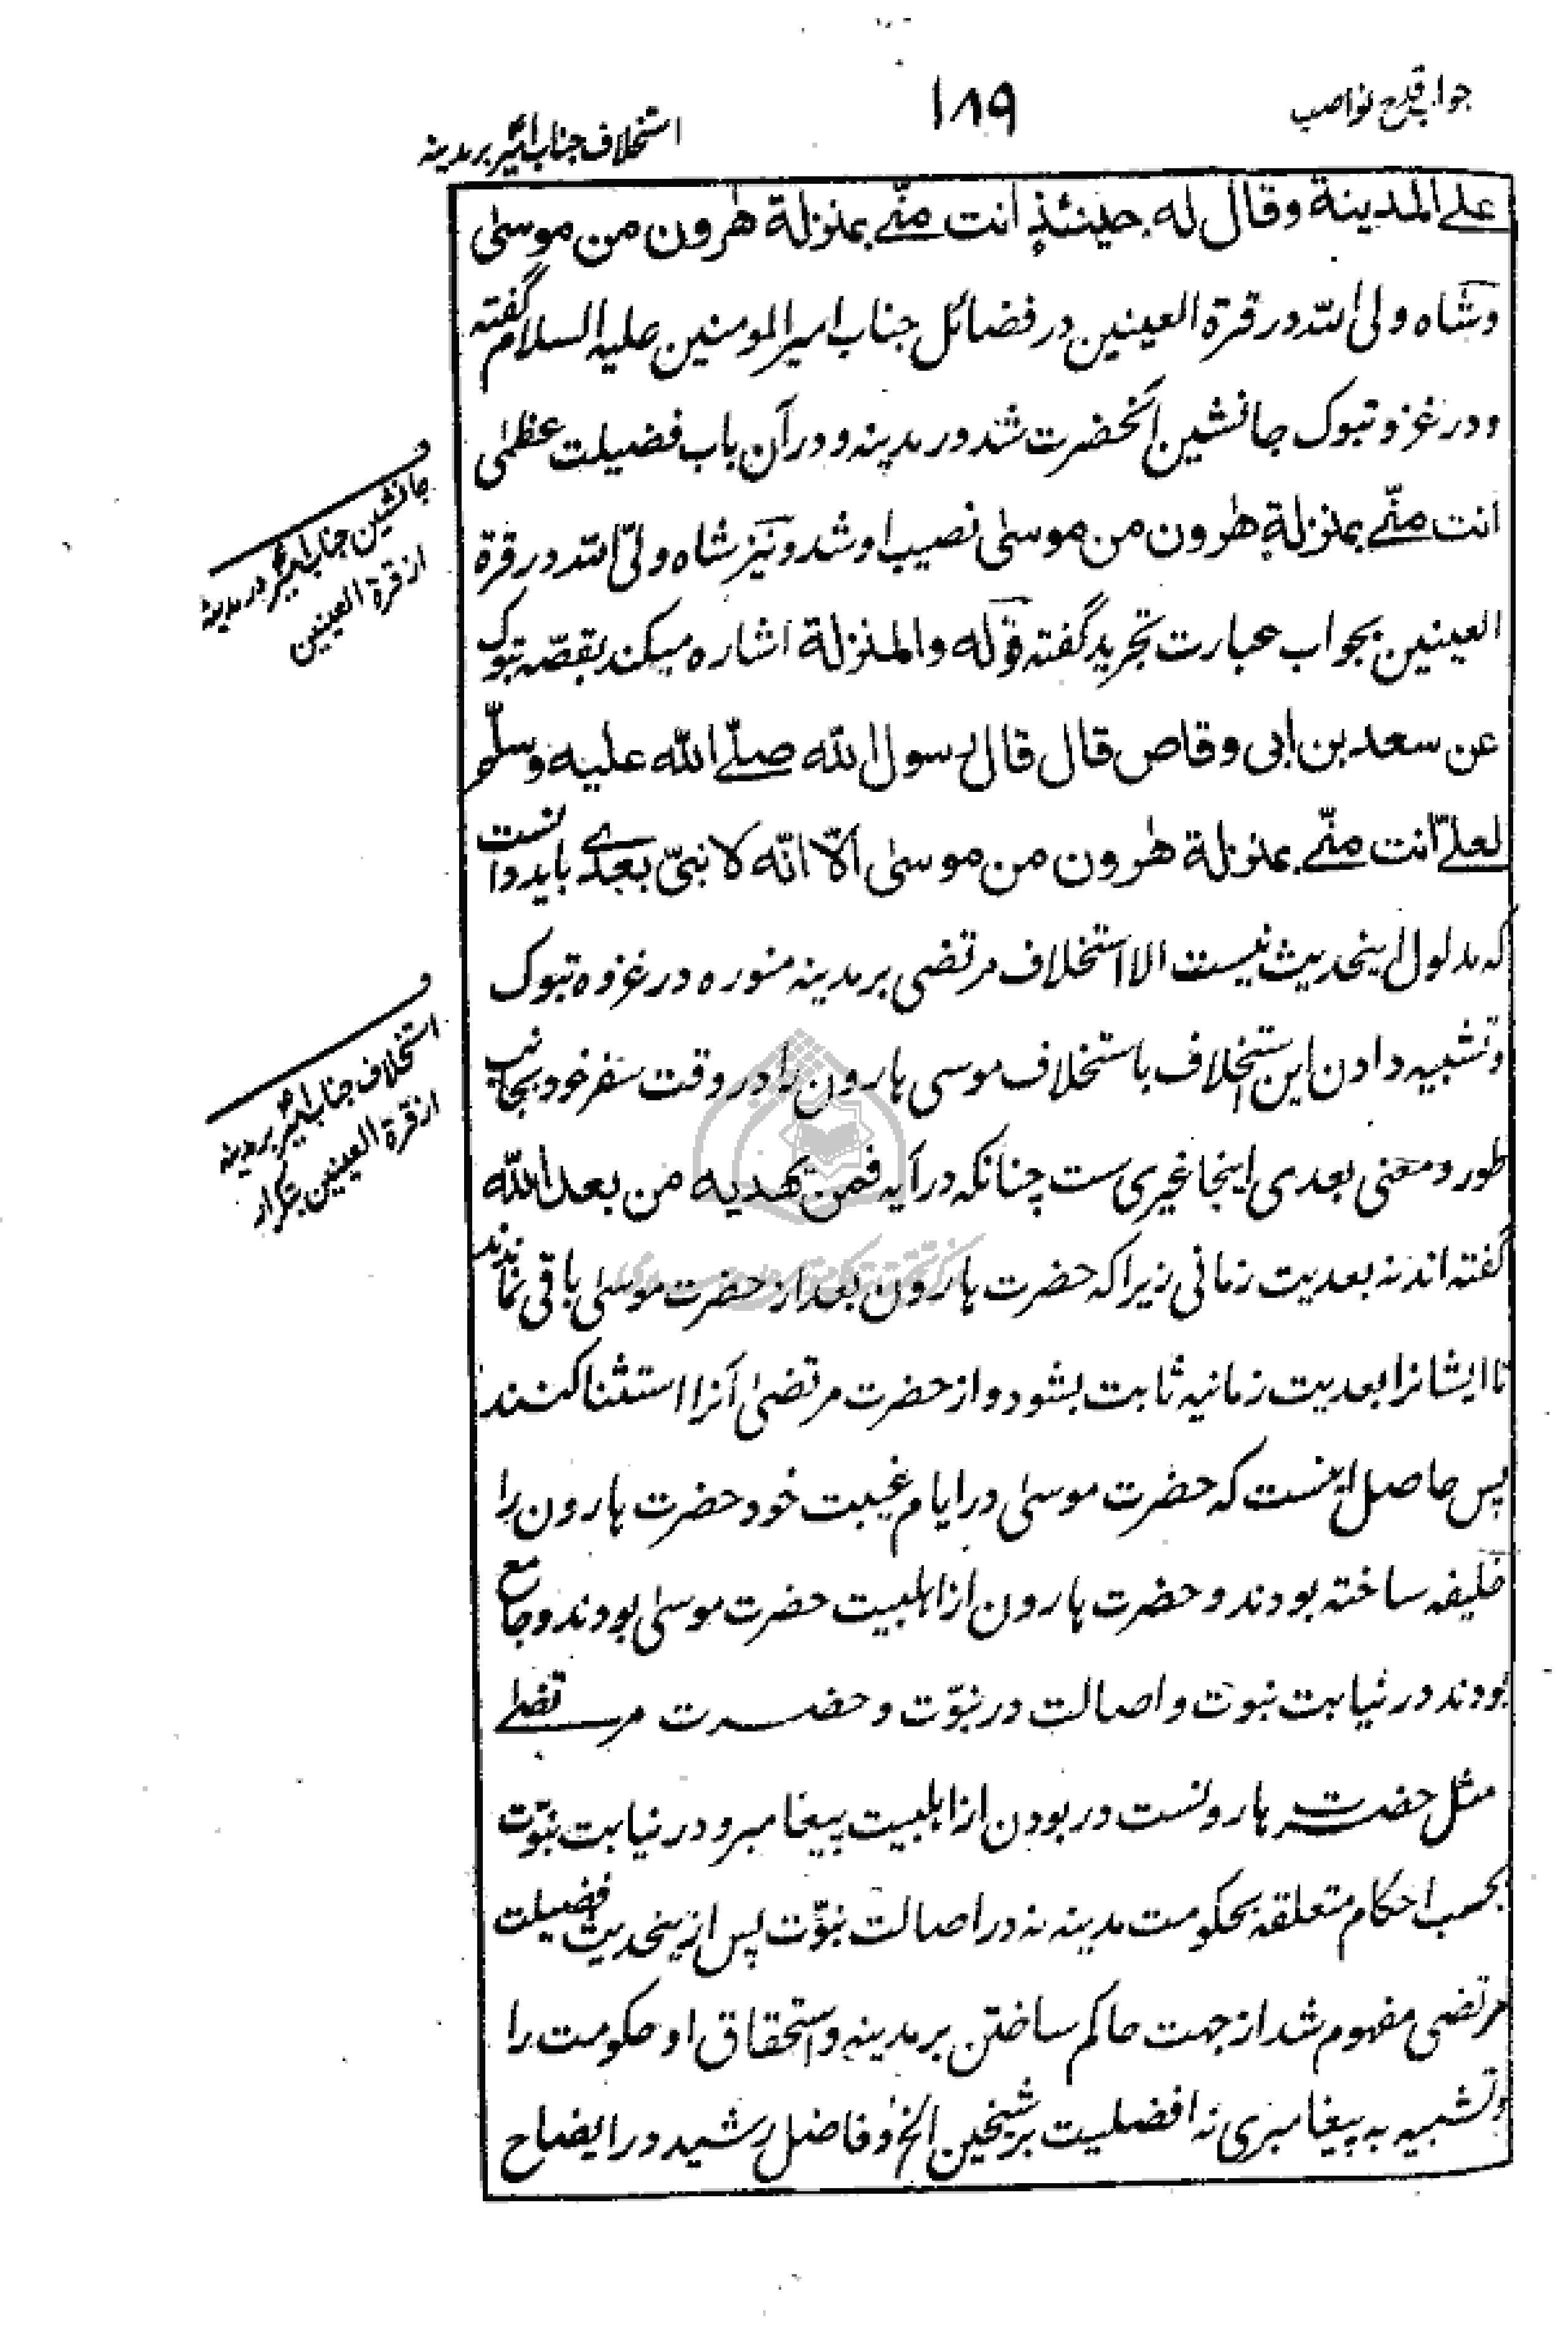 جواب قدح نواصب
۱۸۹
استخلاف جناب امیر بر مدینه
علی المدینة وقال له حینئذٍ انت منّی بمنزلة هٰرون من موسیٰ
وشاه ولی الله در قرة العینین در فضائل جناب امیر المومنین علیه السلام گفته
ودر غزو تبوک جانشین آنحضرت شد در مدینه ودر آن باب فضیلت عظمیٰ
انت منّی بمنزلة هٰرون من موسیٰ نصیب او شد ونیز شاه ولیّ الله در قرة
العینین بجواب عبارت تجرید گفته قوله والمنزلة اشاره میکند بقصّه تبوک
عن سعد بن ابی وقاص قال قال رسول الله صلّی الله علیه وسلّم
لعلیّ انت منّی بمنزلة هٰرون من موسیٰ الّا انّه لا نبیّ بعدی باید دانست
که مدلول اینحدیث نیست الا استخلاف مرتضی بر مدینه منوره در غزوه تبوک
وتشبیه دادن این استخلاف باستخلاف موسی هارون را در وقت سفر خود بجانب
طور ومعنی بعدی اینجا غیری ست چنانکه در آیه فمن یهدیه من بعد الله
گفته اند نه بعدیت زمانی زیرا که حضرت هارون بعد از حضرت موسیٰ باقی نماندند
تا ایشانرا بعدیت زمانیه ثابت بشود واز حضرت مرتضیٰ آنرا استثنا کنند
پس حاصل اینست که حضرت موسیٰ در ایام غیبت خود حضرت هارون را
خلیفه ساخته بودند وحضرت هارون از اهلبیت حضرت موسیٰ بودند وجامع
بودند در نیابت نبوت واصالت در نبوّت وحضرت مرتضے
مثل حضرت هارونست در بودن از اهلبیت پیغامبر ودر نیابت نبوّت
بحسب احکام متعلقه بحکومت مدینه نه در اصالت نبوّت پس ازینحدیث فضیلت
مرتضی مفهوم شد از جهت حاکم ساختن بر مدینه واستحقاق او حکومت را
وتشبیه به پیغامبری نه افضلیت بر شیخین الخ وفاضل رشید در ایضاح
و
جانشین جناب امیر در مدینه
از قرة العینین
و
استخلاف جناب امیر بر مدینه
از قرة العینین بتکرار